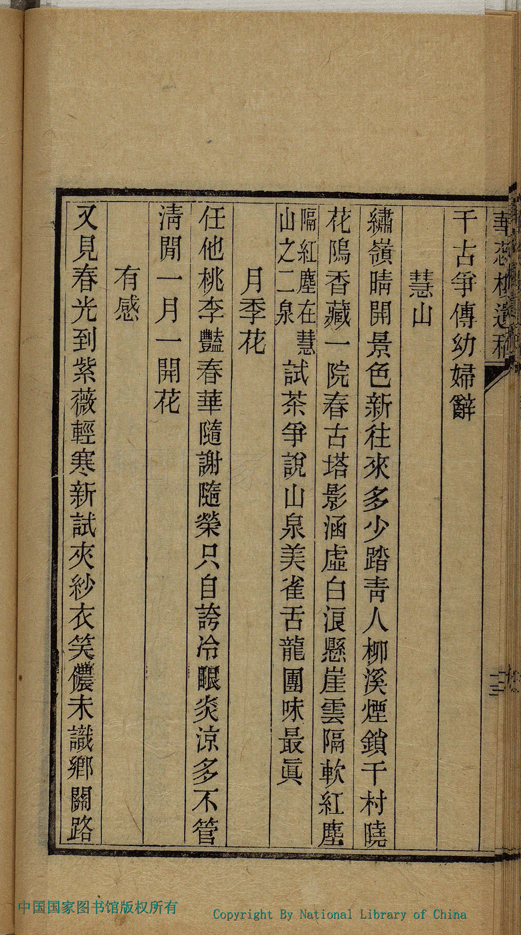 千古爭傳幼婦辭
慧山
繡嶺晴開景色新往來多少踏靑人柳溪煙鎖千村曉
花隖香藏一院春古塔影涵虛白浪懸崖雲隔軟紅塵
隔紅塵在慧
山之二泉
試茶爭說山泉美雀舌龍團味最眞
月季花
任他桃李豔春華隨謝隨榮只自誇冷眼炎涼多不管
淸閒一月一開花
有感
又見春光到紫薇輕寒新試夾紗衣笑儂未識鄉關路
中国国家图书馆版权所有
Copyright By National Library of China